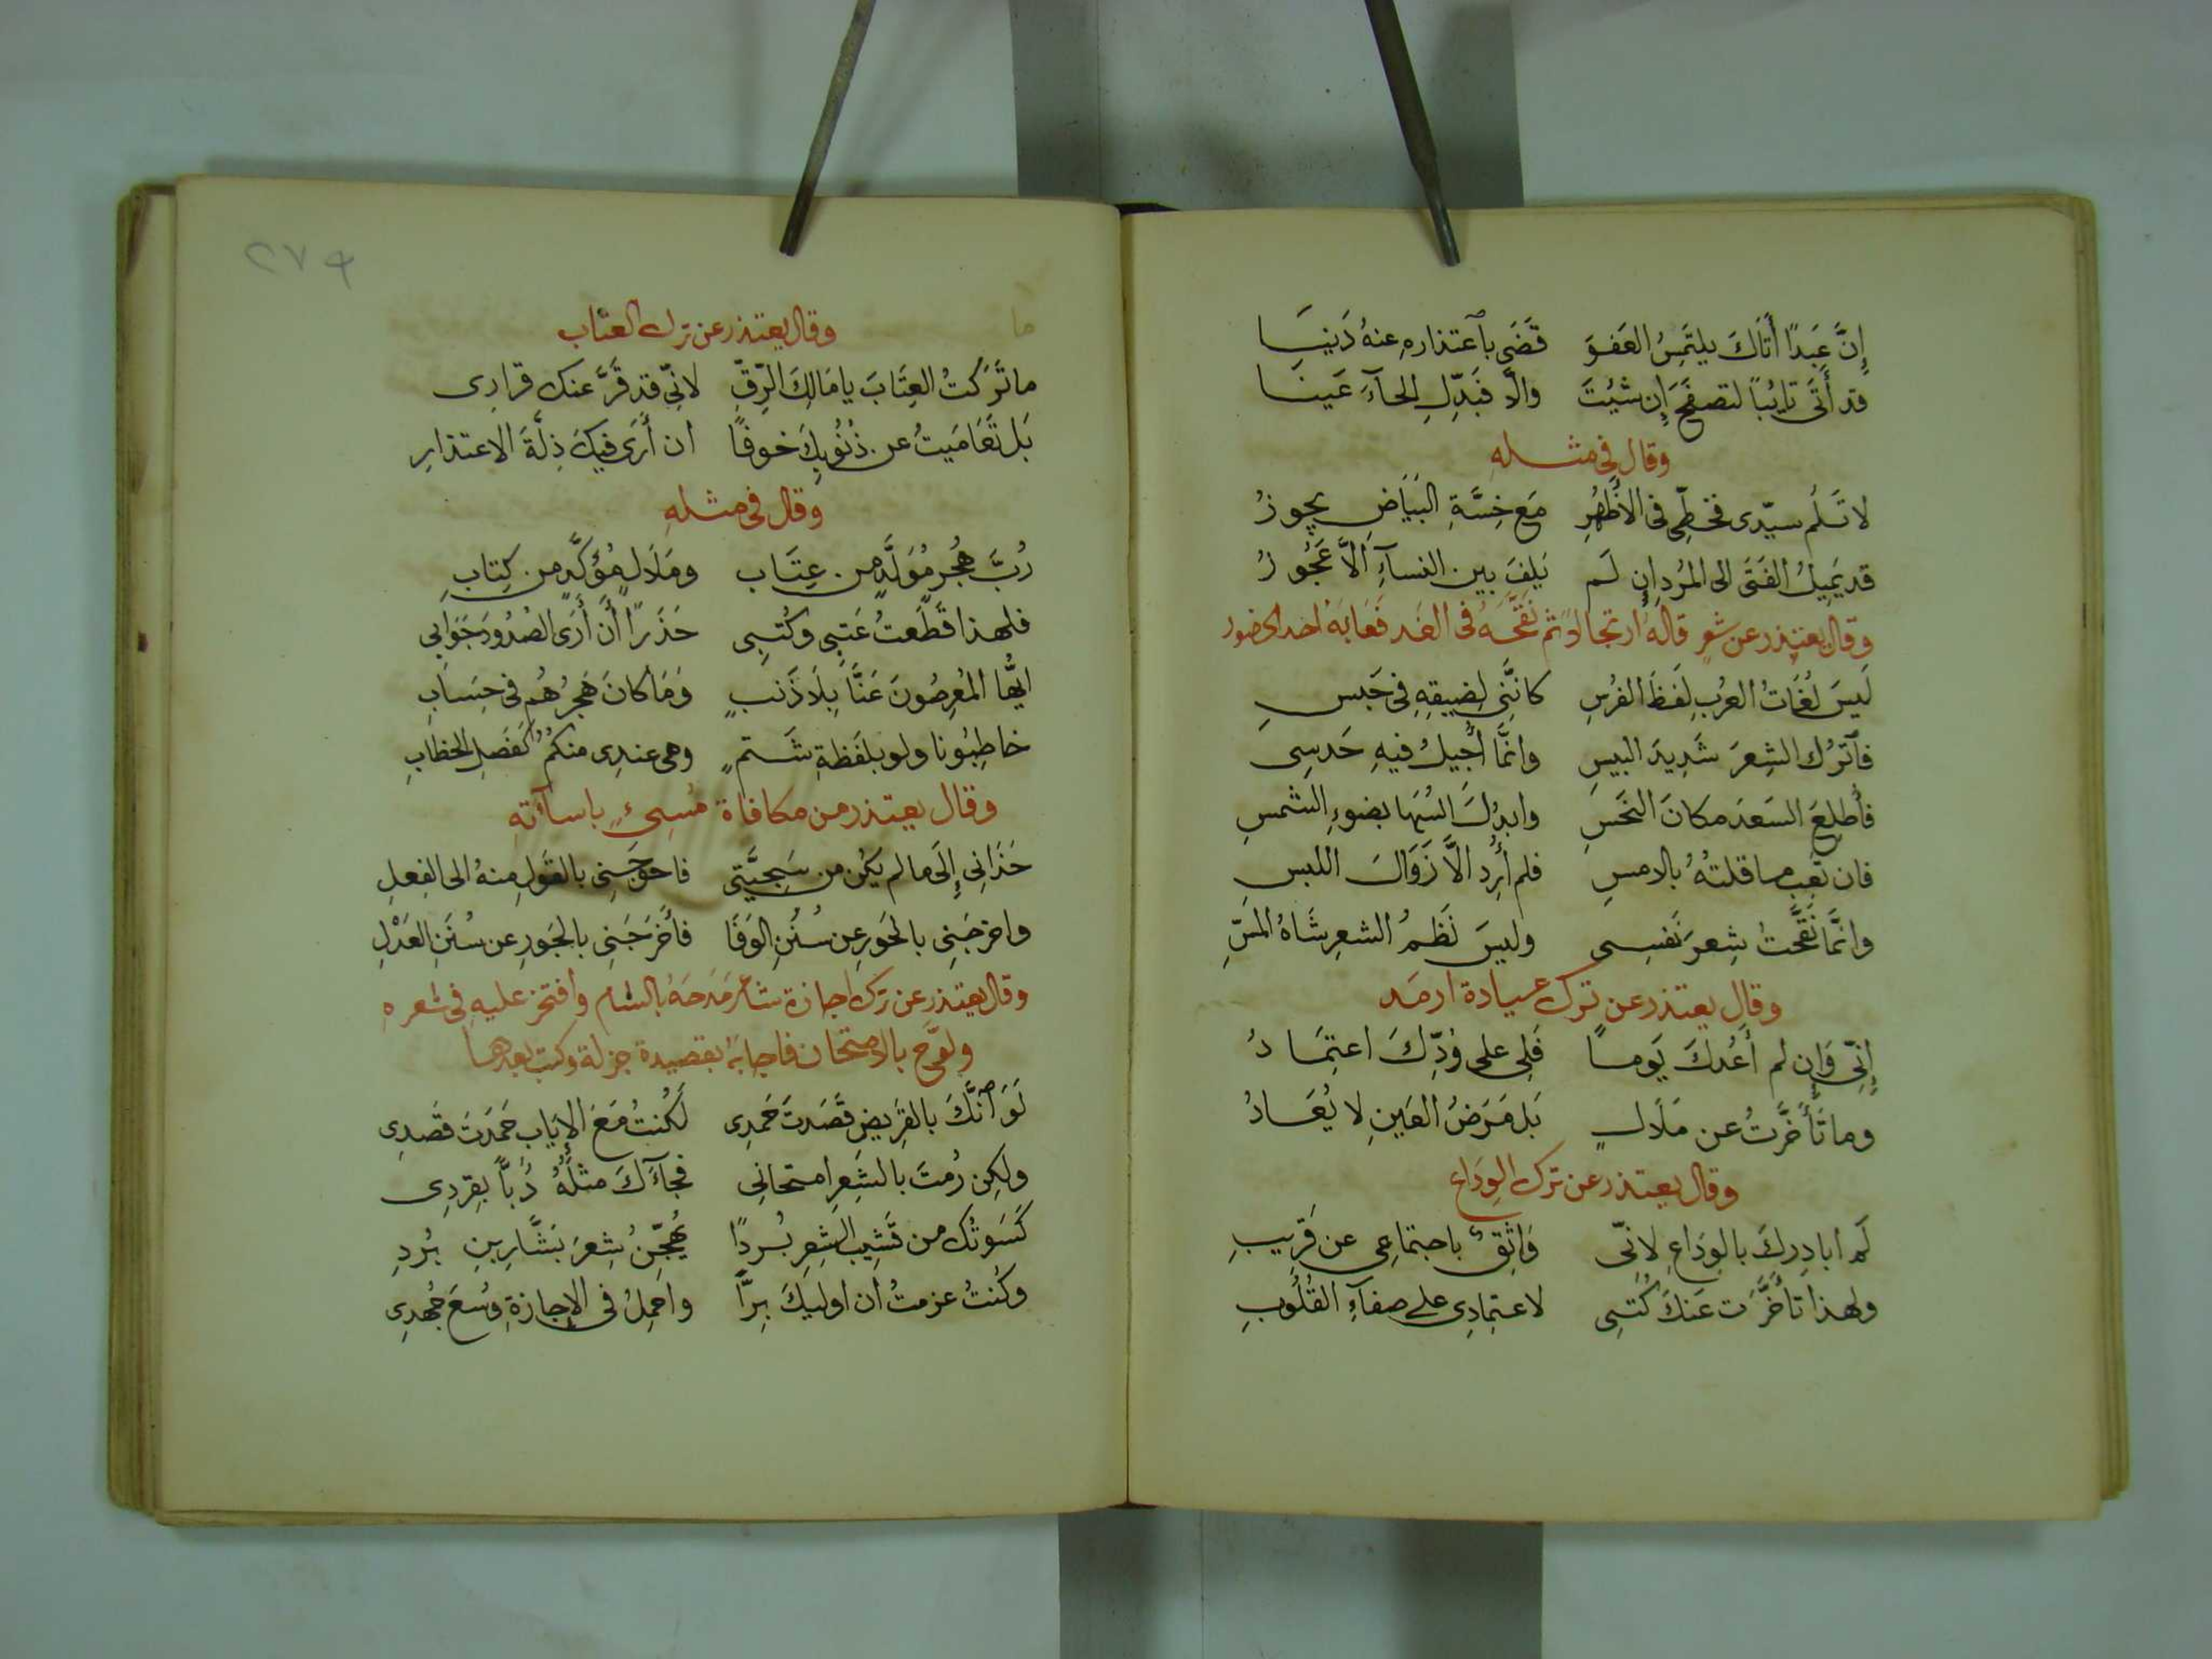 إِنَّ عَبدًا أَتَاكَ يلتَمِسُ العَفوَ قَضَى بٱعتذاره عنهُ دَنيَا
قد أَتَى تايُبًا لتصفَحَ إِن شئتَ والّا فبَدِّلِ الحآءَ عَينَا
وقال فى مثله
لا تَلُم سيّدى فحَظِّى فى الأَظهُرِ مَع خِسَّةِ البَيَاضِ يجوزُ
قد يَمِيلُ الفَتَى الى المُردِ إن لَم يَلفَ بين النسآءِ الاَّ عَجُوزُ
وقال يعتذر عن شعرٍ قالهُ ارتجالاً ثم نَقَّحَهُ فى الغَد فَعَابَهُ احد الحضور
لَيسَ لُغَاتُ العرُبِ لِفَظَ الفُرسِ كانَّنِى لِضِيقِهِ فى حَبسِ
فٱترُك الشِعرَ شَدِيدَ البيسِ وانَّمَا أُجِيلُ فيهِ حَدسِى
فأُطلِعَ السَعدَ مكانَ النَحَسِ وابدِلَ السُهَا بضوءِ الشمسِ
فان تَعِب ما قلتهُ بالامسِ فلم أُرِد الاَّ زَوَالَ اللبسِ
وانَّمَا نَقَّحتُ شِعرَ نَفسِى وليسَ نَظمُ الشعرِ شَاهُ المَسِّ
وقال يعتذر عن ترك عيادة ارمَد
إِنِّى وَإِن لم أَعُدكَ يَومًا فَلِى على وُدِّكَ اعتِمَادُ
وما تَأَخَّرتُ عن مَلَالٍ بَل مَرَضُ العَينِ لا يُعَادُ
وقال يعتذر عن ترك الوِدَاع
لَم ابادِركَ بالوِدَاعِ لانّى وَاثِقٌ باجتماعِى عن قَرِيبِ
ولهذا تأخَّرَت عَنكَ كُتبِى لاعتِمادِى على صفآءِ القُلُوبِ
٢٧٩
وقال يعتذر عن ترك العتاب
ما تَرَكتُ العِتَابَ يا مَالِكَ الرِّقِّ لانِّى قد قَرَّ عنك قرارِى
بَل تَعَامَيتُ عن ذُنُوبِكَ خوفًا ان أَرَى فيكَ ذِلَّةَ الاعتذارِ
وقال فى مثلهِ
رُبَّ هُجرٍ مُوَلَّدٍ من عِتَابِ ومَلَالٍ مُؤَكَّدٍ من كِتابِ
فلهذا قَطَّعتُ عَتبِى وكُتبِى حَذَرًا أَن أَرَى الصُدُودَ جَوَابى
ايُّها المُعرِضُونَ عَنَّا بِلَا ذَنبٍ وَمَا كانَ هَجرُهُم فى حِسَابِ
خاطِبُونا ولو بلَفظَةِ شَتمٍ وهى عندِى منكمُ كفَصَلِ الخطابِ
وقال يعتذر من مكافاة مُسِىءٍ باسآءته
حَذَانِى إِلَى ما لم يكُن من سَجِيَّتِى فاحوَجَنِى بالقَولِ مِنهُ الى الفِعلِ
واخرَجَنِى بالحَورِ عن سُنَنِ الوَفَا فأَخرَجَنِى بالجَورِ عن سُنَنِ العَدْلِ
وقال يعتذر عن ترك اجازة شاعرٍ مَدَحَهُ بالشام وافتخر عليه فى شعره
ولوَّحَ بالامتحان فاجابهُ بقصيدة جزلة وكتب بعدها
لَوَ ٱنَّكَ بالقَرِيضِ قَصَدتَ حَمدِى لَكُنتُ مَعَ الإِيَابِ حَمَدتَ قَصدِى
ولكِن رُمتَ بالشِعرِ امتحانِى فجآءَكَ مثلَهُ دُبًّا بِقِردِى
كَسَوتُك من قَشِيبِ الشِعرِ بُردًا يُهَجِّنُ شِعرَ بَشَّارِ بنِ بُردِ
وكُنتُ عزمتُ ان اوليكَ بِرًّا واحمِلُ فى الإِجازةِ وُسعَ جُهدِى